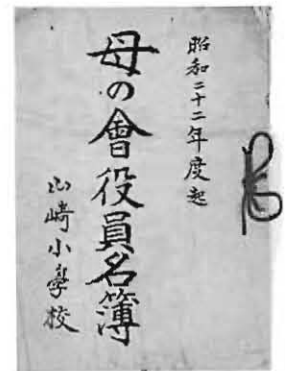 昭和二十二年度起
母の會役員名簿
山崎小學校